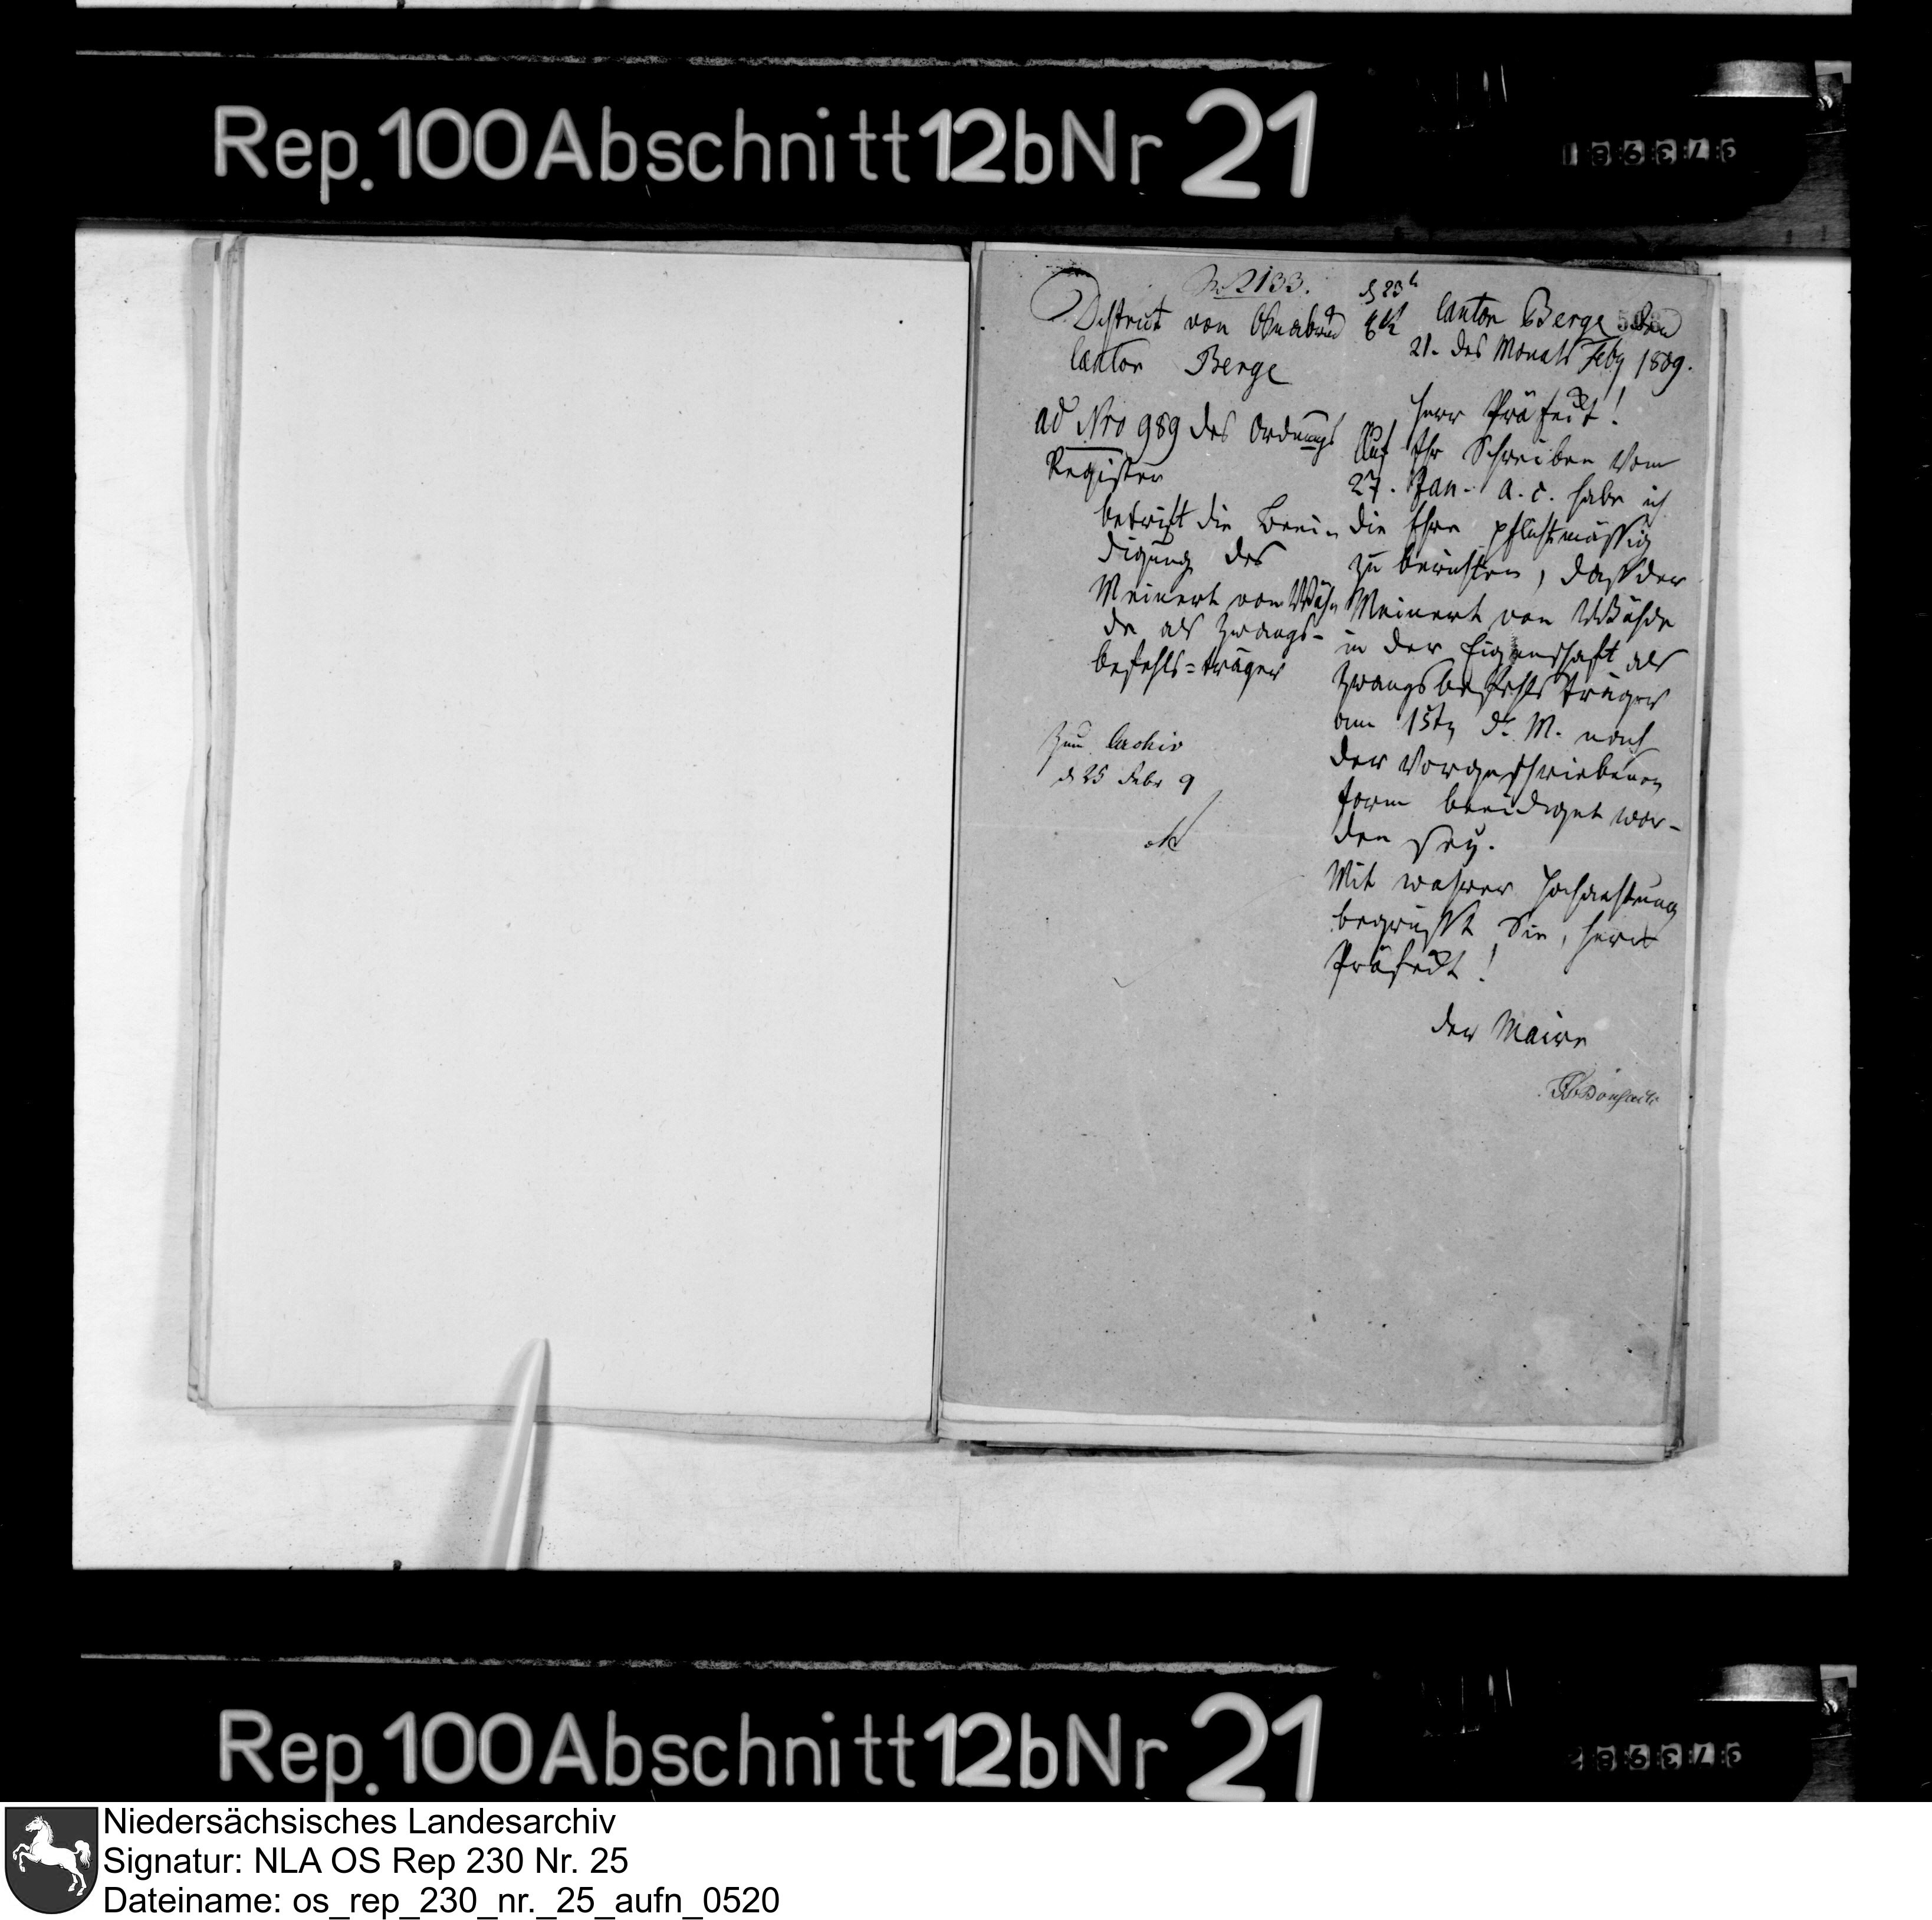 Rep. 100 Abschnitt 12b Nr 21
No 2133.
District von Osnabrück
Canton Berge
ad Nro 989 des Ordnungs
Register
betrift die Beei-
digung des
Meinert von Wäh-
de als Zwangs-
befehls-träger
Zum Archiv
d 25 Febr 9
d 23t
Canton Berge den
21. des Monats Feby 1809.
Herr Präfect!
Auf Ihr Schreiben vom
27. Jan. a. c. habe ich
die Ehre pflichtmässig
zu berichten, dass der
Meinert von Wähde
in der Eigenschaft als
Zwangsbefehls träger
am 15tn d. M. nach
der vorgeschriebenen
form beeidiget wor-
den sey.
Mit wahrer Hochachtung
begrüsst Sie, Herr
Präfect!
der Maire
Rep. 100 Abschnitt 12b Nr 21
Niedersächsisches Landesarchiv
Signatur: NLA OS Rep 230 Nr. 25
Dateiname: os_rep_230_nr._25_aufn_0520